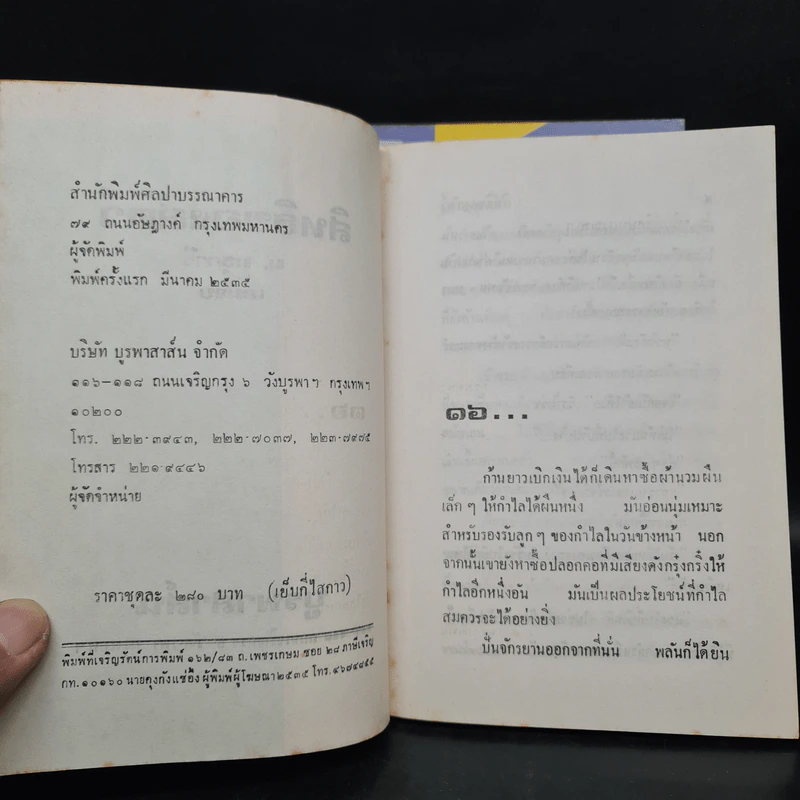 สำนักพิมพ์ศิลปาบรรณาคาร
๗๙ ถนนอัษฎางค์ กรุงเทพมหานคร
ผู้จัดพิมพ์
พิมพ์ครั้งแรก มีนาคม ๒๕๓๕
บริษัท บูรพาสาส์น จำกัด
๑๑๖-๑๑๘ ถนนเจริญกรุง ๖ วังบูรพาฯ กรุงเทพฯ
๑๐๒๐๐
โทร. ๒๒๒-๓๙๔๓, ๒๒๒-๗๐๓๗, ๒๒๓-๗๙๗๕
โทรสาร ๒๒๑-๙๔๔๖
ผู้จัดจำหน่าย
ราคาชุดละ ๒๘๐ บาท (เย็บกี่ไสกาว)
พิมพ์ที่เจริญรัตน์การพิมพ์ ๑๖๒/๘๓ ถ.เพชรเกษม ซอย ๒๘ ภาษีเจริญ
กท. ๑๐๑๖๐ นายคุงกังแซ่อึ้ง ผู้พิมพ์ผู้โฆษณา ๒๕๓๕ โทร. ๔๖๗๔๘๕๕
๑๖...
ก้านยาวเบิกเงินได้ก็เดินหาซื้อผ้านวมผืน
เล็กๆ ให้กำไลได้ผืนหนึ่ง มันอ่อนนุ่มเหมาะ
สำหรับรองรับลูกๆ ของกำไลในวันข้างหน้า นอก
จากนั้นเขายังหาซื้อปลอกคอที่มีเสียงดังกรุ๋งกริ๋งให้
กำไลอีกหนึ่งอัน มันเป็นผลประโยชน์ที่กำไล
สมควรจะได้อย่างยิ่ง
ปั่นจักรยานออกจากที่นั่น พลันก็ได้ยิน